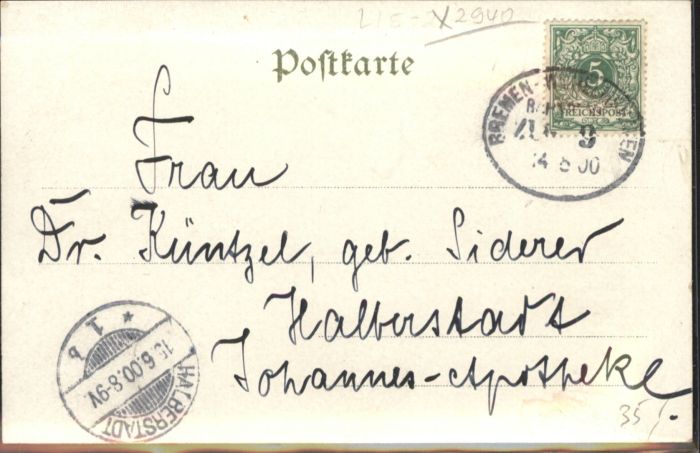 LIE-X2940
Postkarte
5
REICHSPOST
BREMEN-
ZUG 9
14 6 00
Frau
Dr. Küntzel, geb. Siderer
Halberstadt
Johannes-Apotheke.
* 1 b
15.6.00.8-9V.
HALBERSTADT
35/.